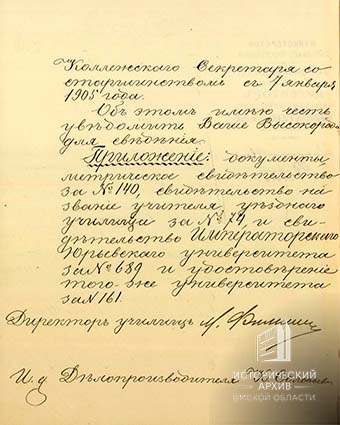 Коллежскаго Секретаря со
старшинствомъ съ 7 января
1905 года.
Объ этомъ имѣю честь
увѣдомить Ваше Высокород.
для свѣдѣнія.
Приложеніе: документы
метрическое свидѣтельство
за № 140, свидѣтельство на
званіе учителя уѣзднаго
училища за № 74, и сви-
дѣтельство Императорскаго
Юрьевскаго университета
за № 689 и удостовѣреніе
того-же университета
за № 161.
Директоръ училищъ
И. д. Дѣлопроизводителя
ИСТОРИЧЕСКИЙ
АРХИВ
ОМСКОЙ ОБЛАСТИ